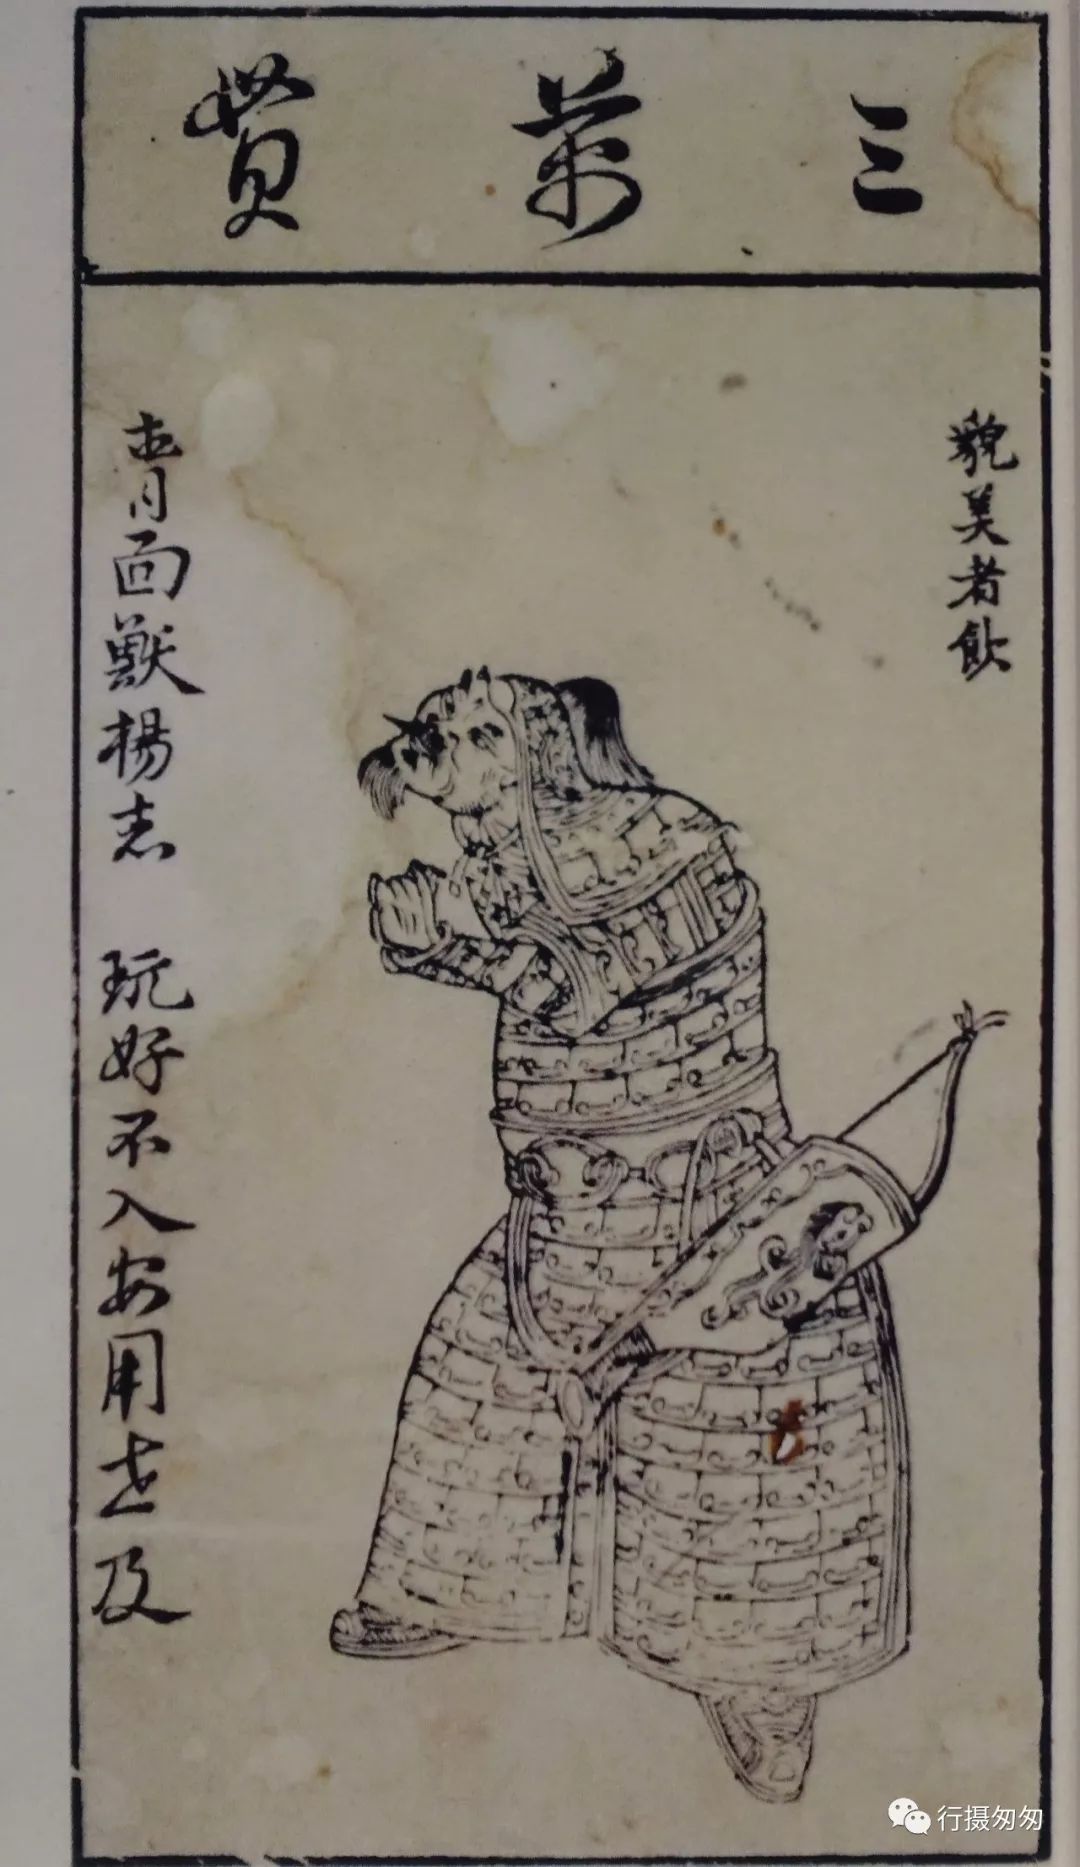 三萬貫
貌美者飲
青面獸楊志 玩好不入安用世及
行摄匆匆